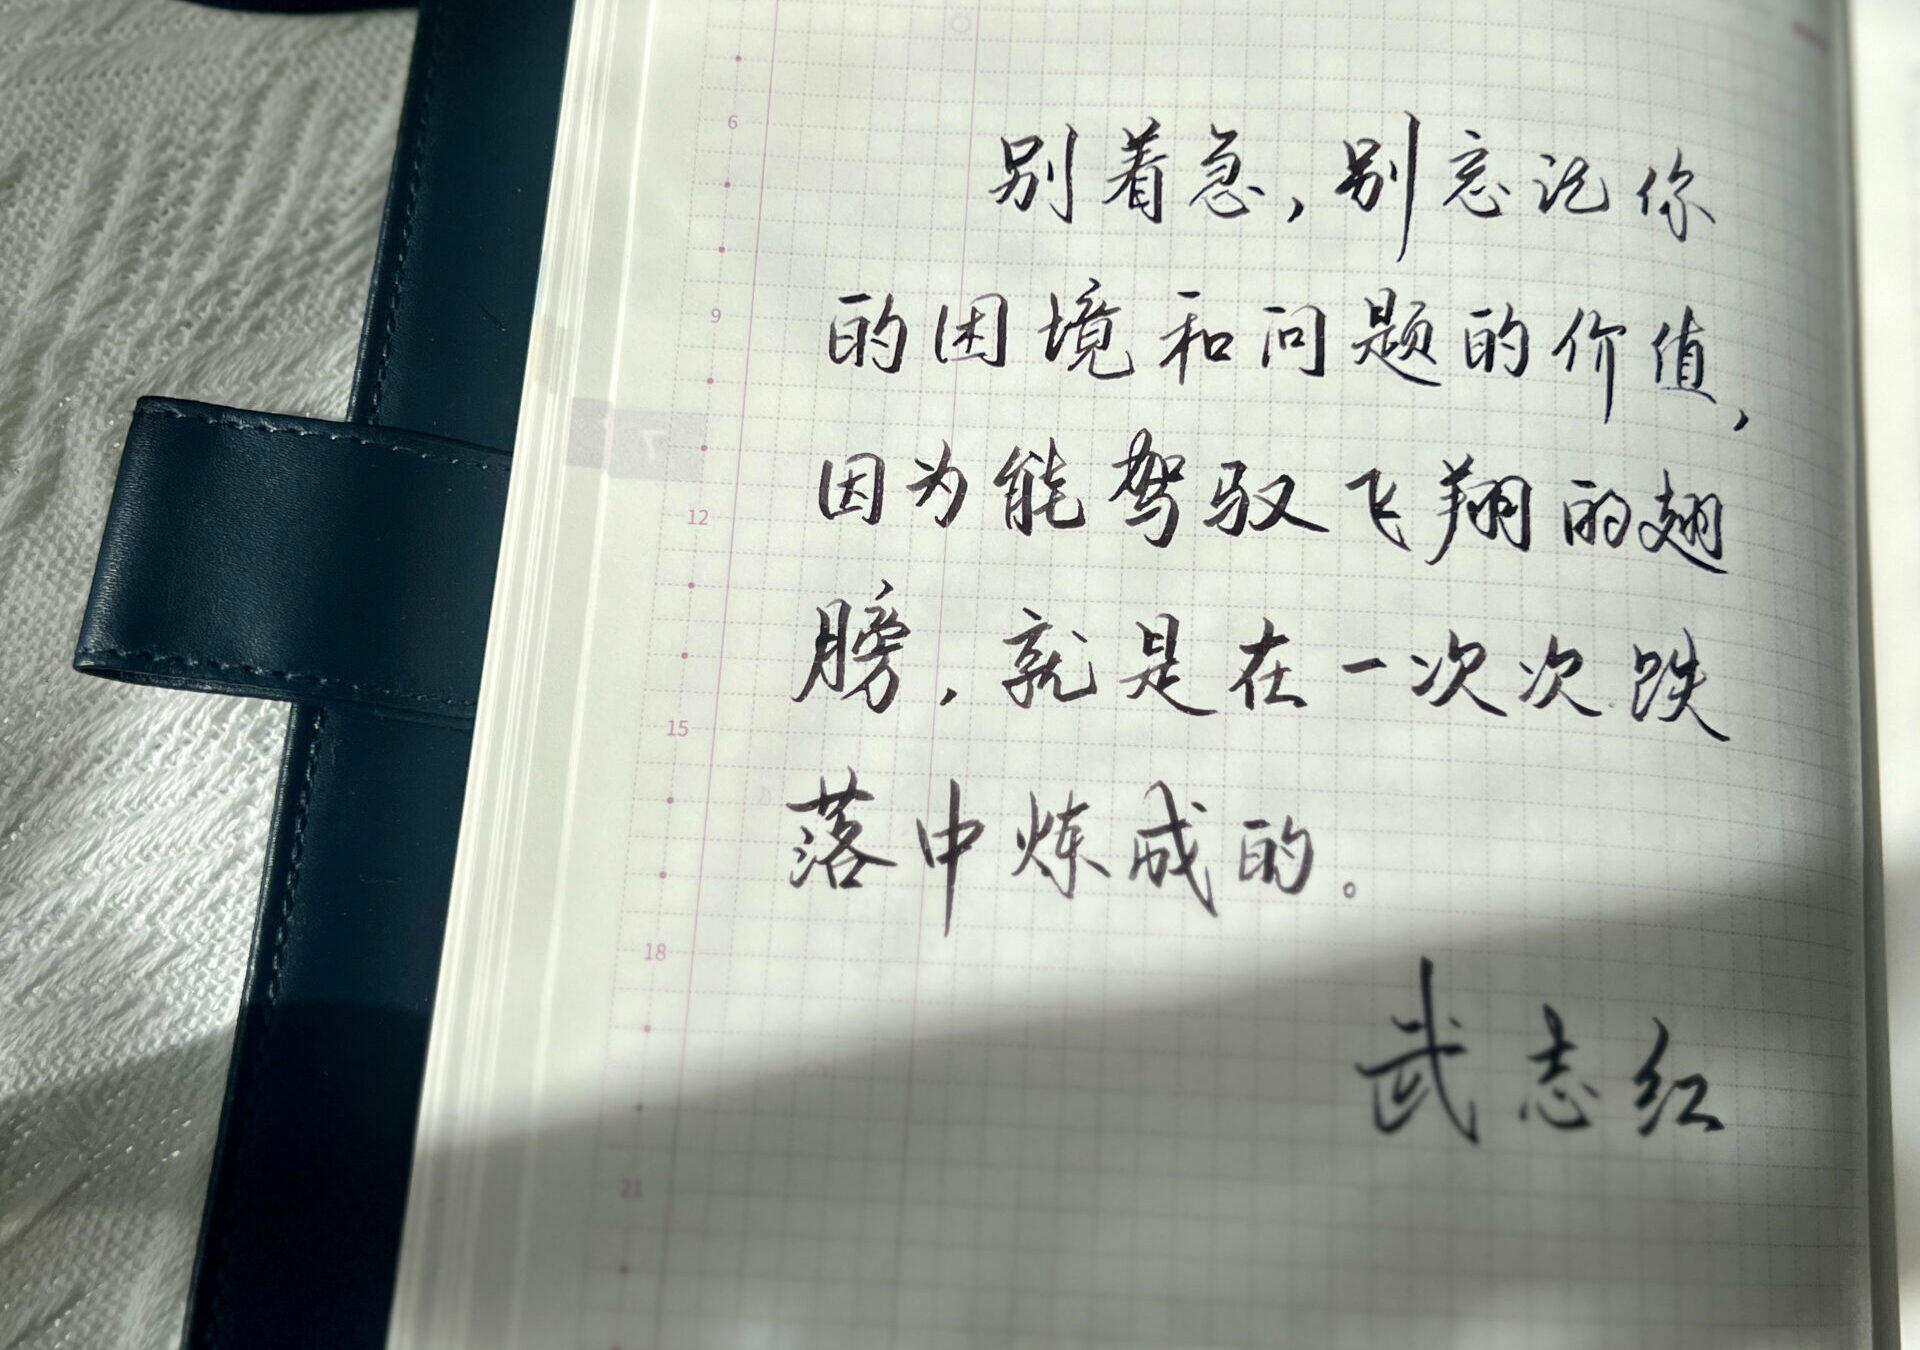 6
别着急,别忘记你
9
的困境和问题的价值,
7
因为能驾驭飞翔的翅
12
膀,就是在一次次跌
15
落中炼成的。
18
武志红
21